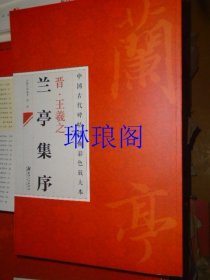 蘭亭
中国古代碑
彩色放大本
晋·王羲之
兰亭集序
琳琅阁